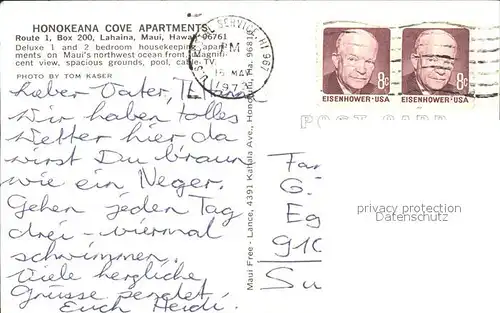 HONOKEANA COVE APARTMENTS
Route 1, Box 200, Lahaina, Maui, Hawaii 96761
Deluxe 1 and 2 bedroom housekeeping apart-
ments on Maui's northwest ocean front. Magnifi-
cent view, spacious grounds, pool, cable TV.
PHOTO BY TOM KASER
Lieber Vater,
Wir haben tolles
Wetter hier da
wirst Du braun
wie ein Neger.
Gehen jeden Tag
drei - viermal
schwimmen.
Viele herzliche
Grüsse sendet
Euch Heidi.
Maui Free-Lance, 4391 Kahala Ave., Honolulu, Ha. 96816
U.S. SERVICE, HI 967
PM
15 MAY
197
8c
EISENHOWER·USA
8c
EISENHOWER·USA
POST CARD
Fa
G.
Eg
910
Su
privacy protection
Datenschutz